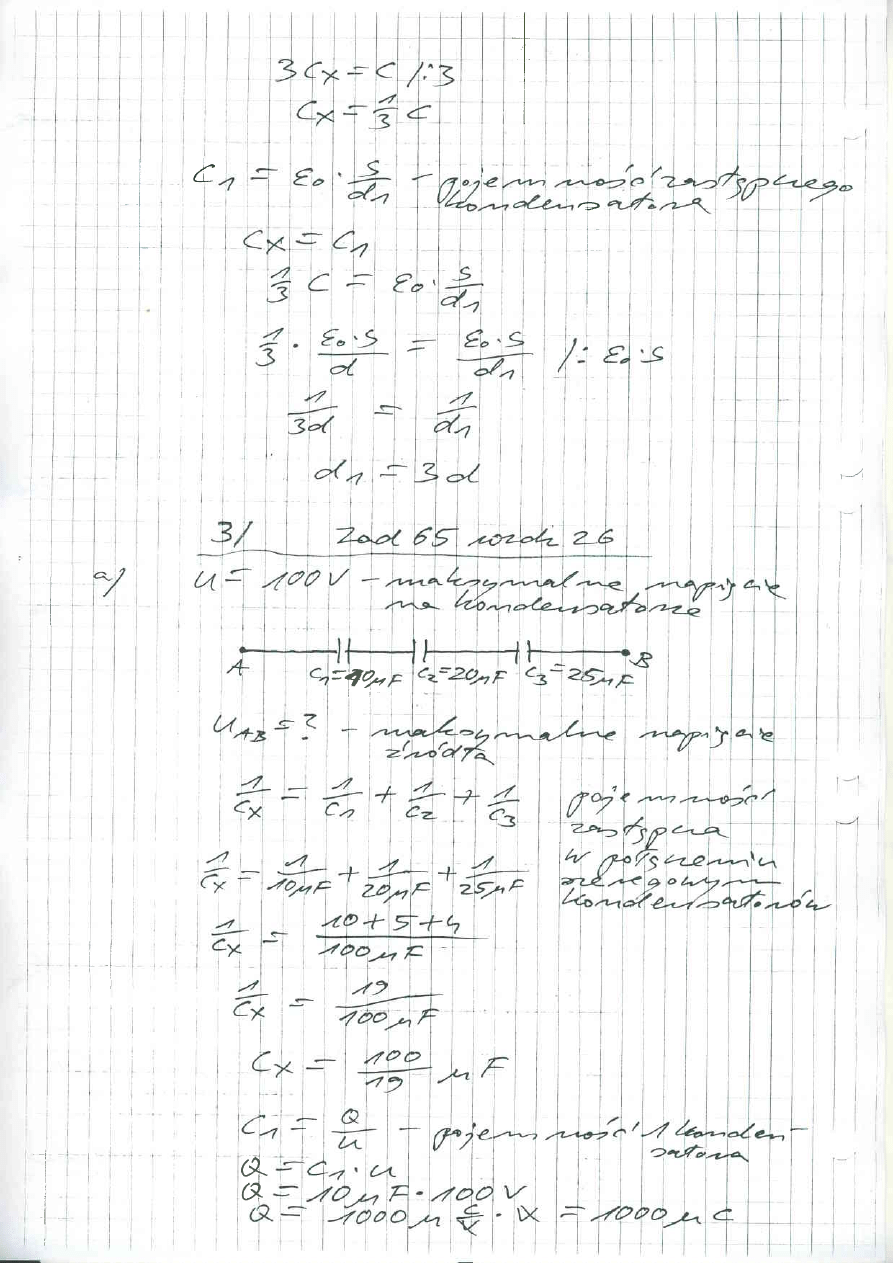 3Cx = C /:3
Cx = 1/3 C
C1 = ε0 · s/d1 - pojemność zastępczego
kondensatora
Cx = C1
1/3 C = ε0 · s/d1
1/3 · ε0·s/d = ε0·s/d1 /: ε0·s
1/3d = 1/d1
d1 = 3d
3/ Zad 65 rozdz 26
a) U = 100V - maksymalne napięcie
na kondensatorze
A C1=10μF C2=20μF C3=25μF B
UAB = ? - maksymalne napięcie
źródła
1/Cx = 1/C1 + 1/C2 + 1/C3 pojemność
zastępcza
1/Cx = 1/10μF + 1/20μF + 1/25μF w połączeniu
szeregowym
kondensatorów
1/Cx = 10+5+4/100μF
1/Cx = 19/100μF
Cx = 100/19 μF
C1 = Q/U - pojemność 1 konden-
satora
Q = C1·U
Q = 10μF · 100V
Q = 1000μ C/V · V = 1000μC